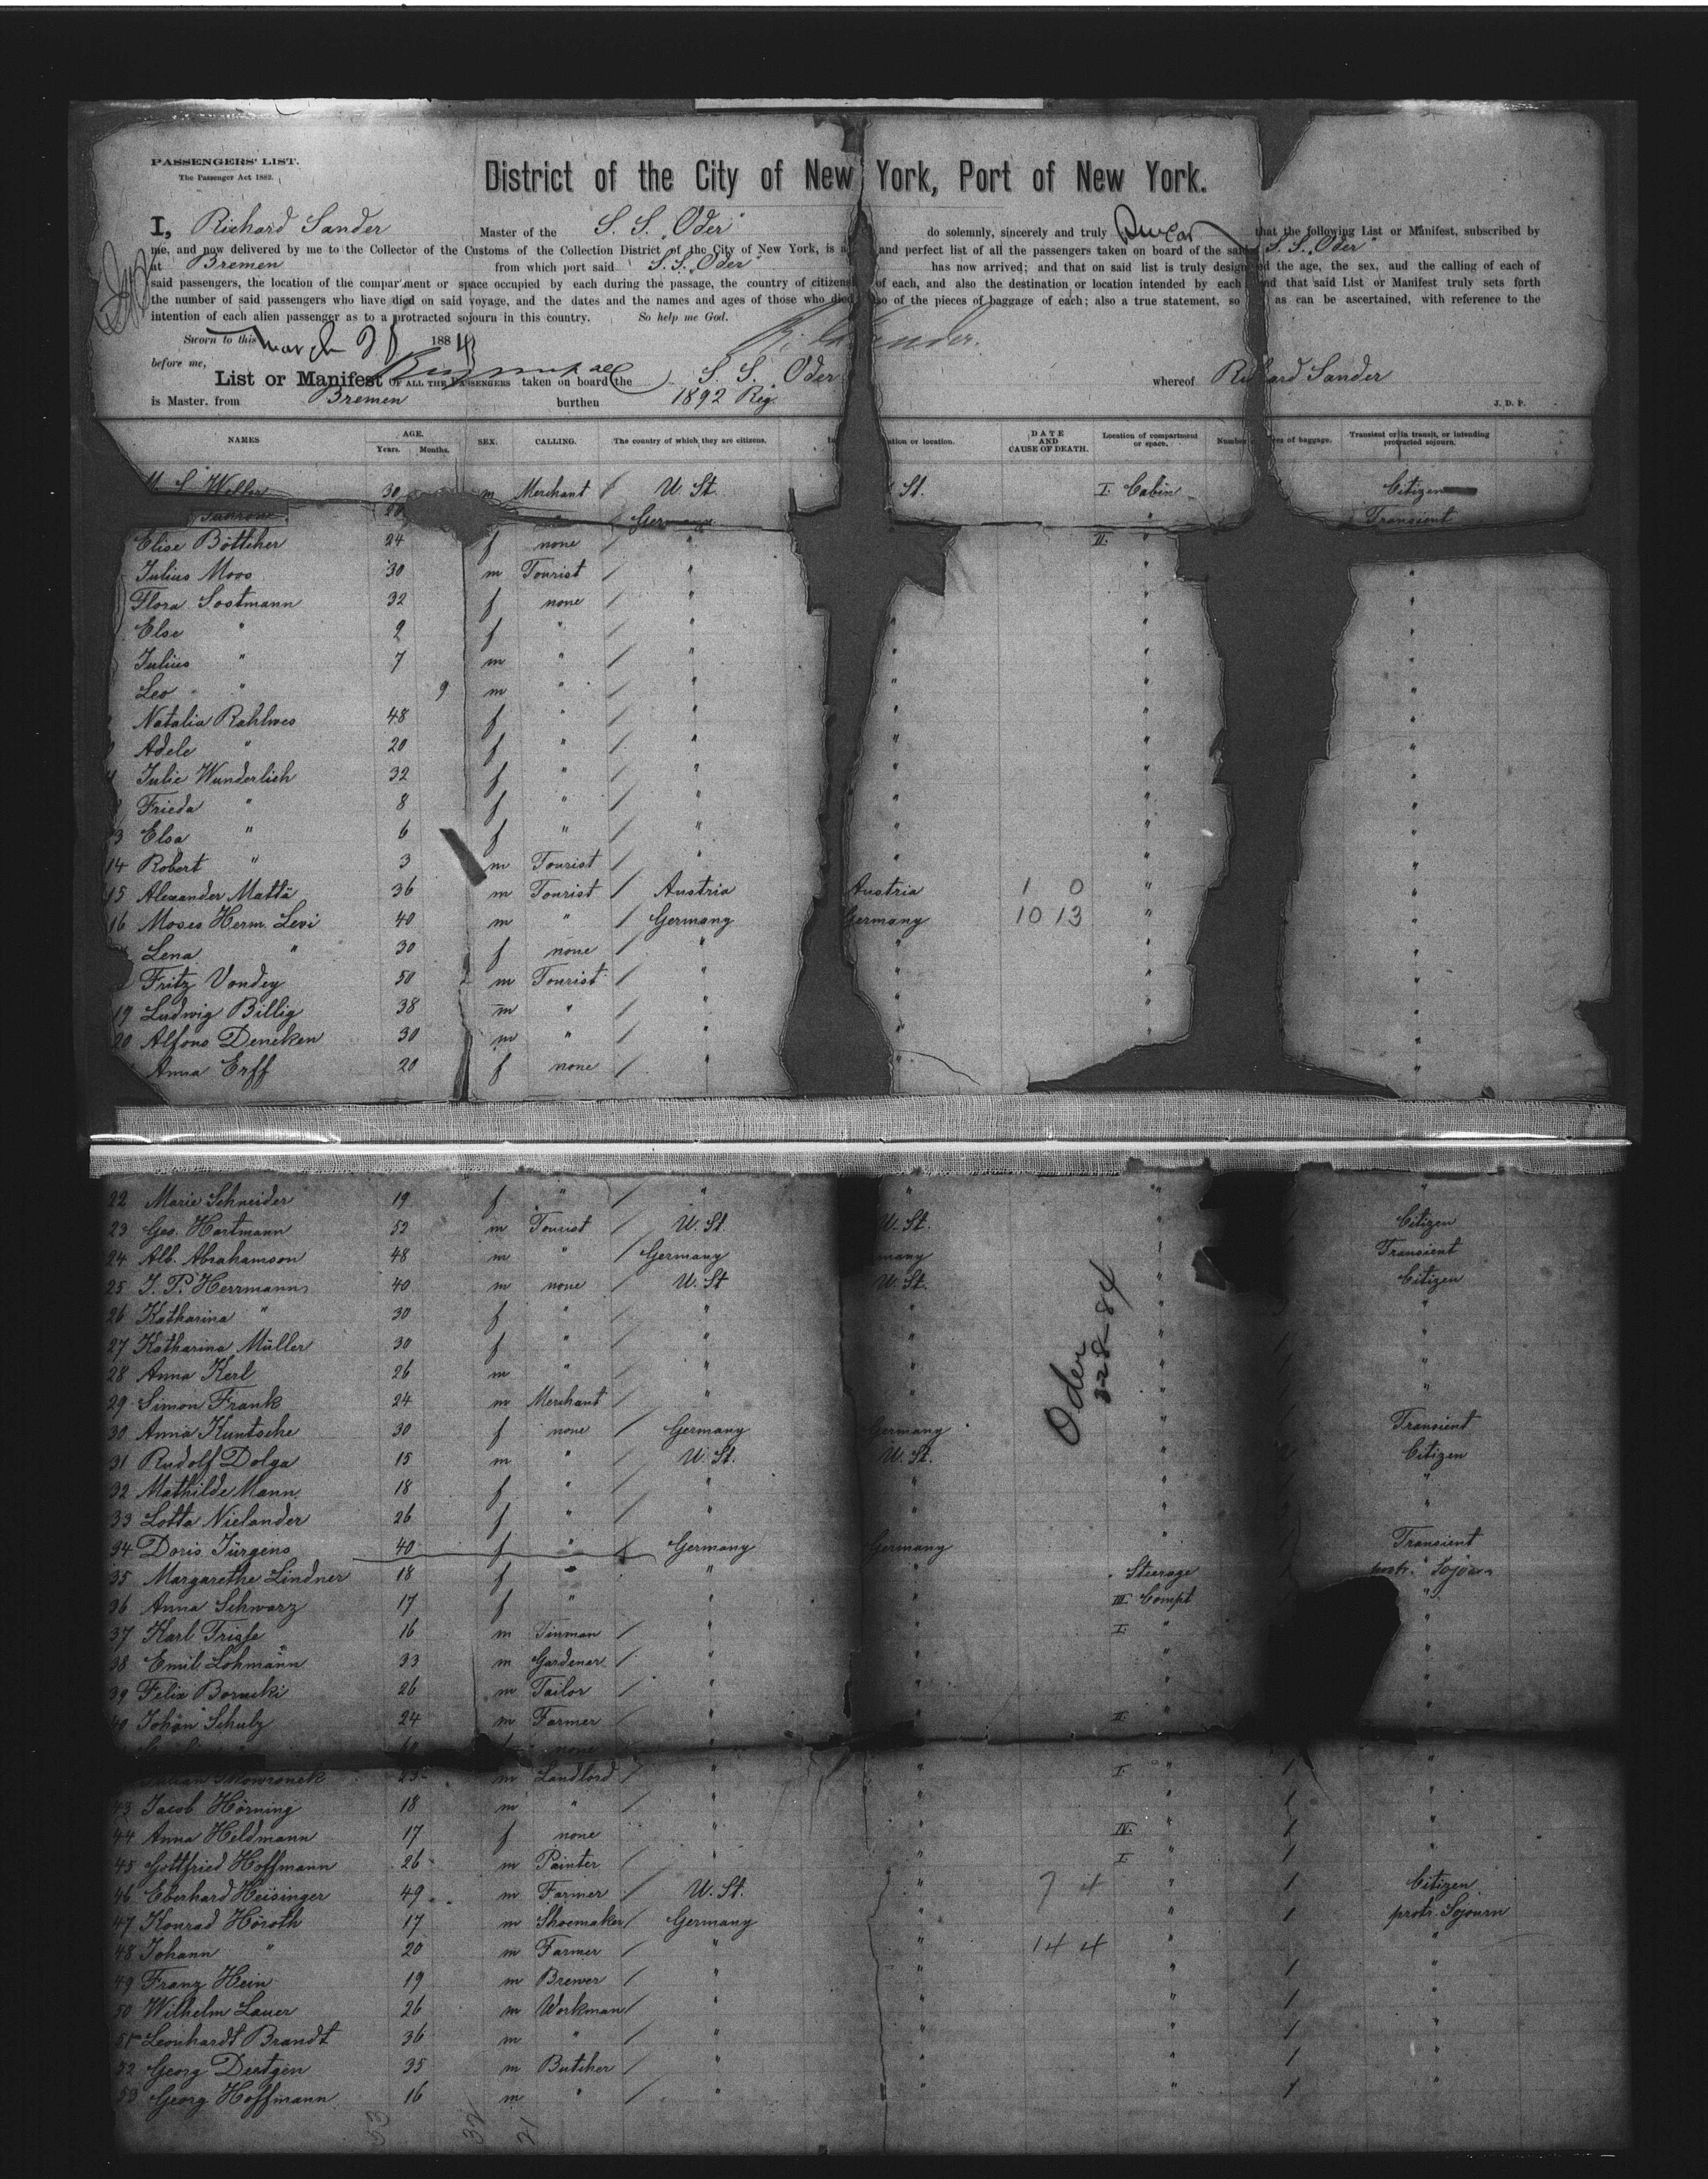 PASSENGERS' LIST.
The Passenger Act 1882.
District of the City of New York, Port of New York.
I, Richard Sander Master of the S. S. "Oder" do solemnly, sincerely and truly swear that the following List or Manifest, subscribed by
me, and now delivered by me to the Collector of the Customs of the Collection District of the City of New York, is a and perfect list of all the passengers taken on board of the said S. S. "Oder"
at Bremen from which port said S. S. "Oder" has now arrived; and that on said list is truly designated the age, the sex, and the calling of each of
said passengers, the location of the compartment or space occupied by each during the passage, the country of citizenship of each, and also the destination or location intended by each and that said List or Manifest truly sets forth
the number of said passengers who have died on said voyage, and the dates and the names and ages of those who died also of the pieces of baggage of each; also a true statement, so as can be ascertained, with reference to the
intention of each alien passenger as to a protracted sojourn in this country. So help me God.
Sworn to this March 28 1884
R. Sander.
before me,
List or Manifest OF ALL THE PASSENGERS taken on board the S. S. Oder whereof Richard Sander
is Master, from Bremen burthen 1892 Reg. J. D. P.
NAMES AGE. Years. Months. SEX. CALLING. The country of which they are citizens. Intended destination or location. DATE AND CAUSE OF DEATH. Location of compartment or space. Number pieces of baggage. Transient or in transit, or intending protracted sojourn.
30 m Merchant / U. St. St. I. Cabin Citizen
20 " / Germany " Transient
Elise Böttcher 24 f none / " II. "
Julius Moos 30 m Tourist / " " "
Flora Sostmann 32 f none / " " "
Else " 9 f " / " " " "
Julius " 7 m " / " " " "
Leo " 9 m " / " " " "
Natalia Rahlwes 48 f " / " " " "
Adele " 20 f " / " " " "
Julie Wunderlich 32 f " / " " " "
Frieda " 8 f " / " " " "
13 Elsa " 6 f " / " " " "
14 Robert " 3 m Tourist / " " " "
15 Alexander Mattä 36 m Tourist / Austria Austria 1 0 " "
16 Moses Herm. Levi 40 m " / Germany Germany 10 13 " "
Lena " 30 f none / " " " "
Fritz Vondey 50 m Tourist / " " " "
19 Ludwig Billig 38 m " / " " " "
20 Alfons Deneken 30 m " / " " " "
Anna Erff 20 f none / " " "
22 Marie Schneider 19 f " / " " " "
23 Geo. Hartmann 52 m Tourist / U. St. U. St. " Citizen
24 Alb. Abrahamson 48 m " / Germany many " Transient
25 J. P. Herrmann 40 m none / U. St U. St. " Citizen
26 Katharina " 30 f " / " " " "
27 Katharina Müller 30 f " / " " " "
28 Anna Kerl 26 m " / " " " "
29 Simon Frank 24 m Merchant / " " " "
30 Anna Kuntsche 30 f none / Germany Germany " Transient
31 Rudolf Dolga 15 m " / U. St. U. St. " Citizen
32 Mathilde Mann 18 f " / " " " "
33 Lotta Nielander 26 f " / " " " "
34 Doris Jürgens 40 f " / Germany Germany " Transient
Oder 3-28-84
35 Margarethe Lindner 18 f " " " Steerage protr. Sojourn
36 Anna Schwarz 17 f " " " III Compt "
37 Karl Triesse 16 m Tinman / " " I. " "
38 Emil Lohmann 33 m Gardener / " " " "
39 Felix Bornicki 26 m Tailor / " " " "
40 Johan Schulz 24 m Farmer / " " II. " "
none "
Skowronek 23 m Landlord / " " I. " 1 "
43 Jacob Hörning 18 m " / " " " 1 "
44 Anna Heldmann 17 f none " " IV. " 1 "
45 Gottfried Hoffmann 26 m Painter / " " I. " 1 "
46 Eberhard Heisinger 49 m Farmer / U. St. " 7 4 " 1 Citizen
47 Konrad Höroth 17 m Shoemaker / Germany " " 1 protr. Sojourn
48 Johann " 20 m Farmer / " " 14 4 " "
49 Franz Hein 19 m Brewer / " " " 1 "
50 Wilhelm Lauer 26 m Workman / " " " 1 "
51 Leonhardt Brandt 36 m " / " " " 1 "
52 Georg Deetgen 35 m Butcher / " " " 1 "
53 Georg Hoffmann 16 m " / " " " 1 "
53 32 21